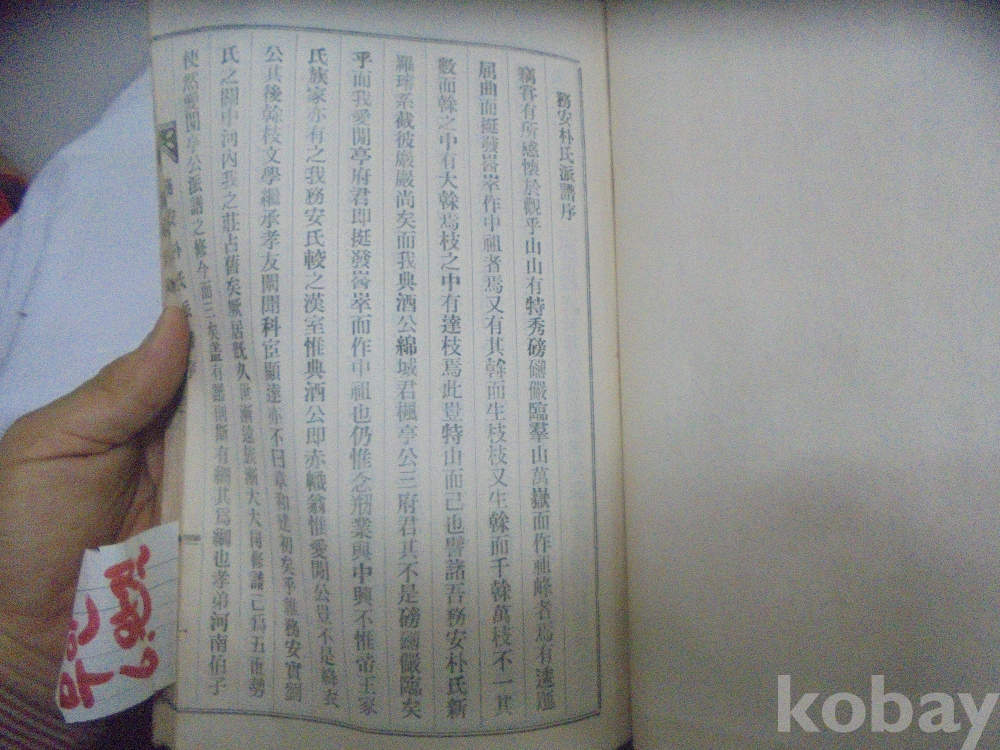 務安朴氏派譜序
竊嘗有所感懷於觀乎山山有特秀磅礴儼臨羣山萬嶽而作祖峰者焉有逶迤
屈曲而挺發崒作中祖者焉又有其榦而生枝枝又生榦而千榦萬枝不一其
數而榦之中有大榦焉枝之中有達枝焉此豈特山而已也譬諸吾務安朴氏新
羅璿系截彼嚴嚴尚矣而我典酒公綿城君楓亭公三府君其不是磅礴儼臨矣
乎而我愛閒亭府君即挺發崒而作中祖也仍惟念剏業興中興不惟帝王家
氏族家亦有之我務安氏較之漢室惟典酒公即赤幟翁惟愛閒公豈不是
公其後榦枝文學繼承孝友聞科宦顯達亦不曰章和建初矣乎務安實劉
氏之關中河內我之莊占舊矣厥居旣久世漸遠族漸大大同修譜已爲五世勢
使然愛閒亭公派譜之修今而三矣蓋有斯有綱其爲綱也孝弟河南伯子
務安朴氏派
kobay